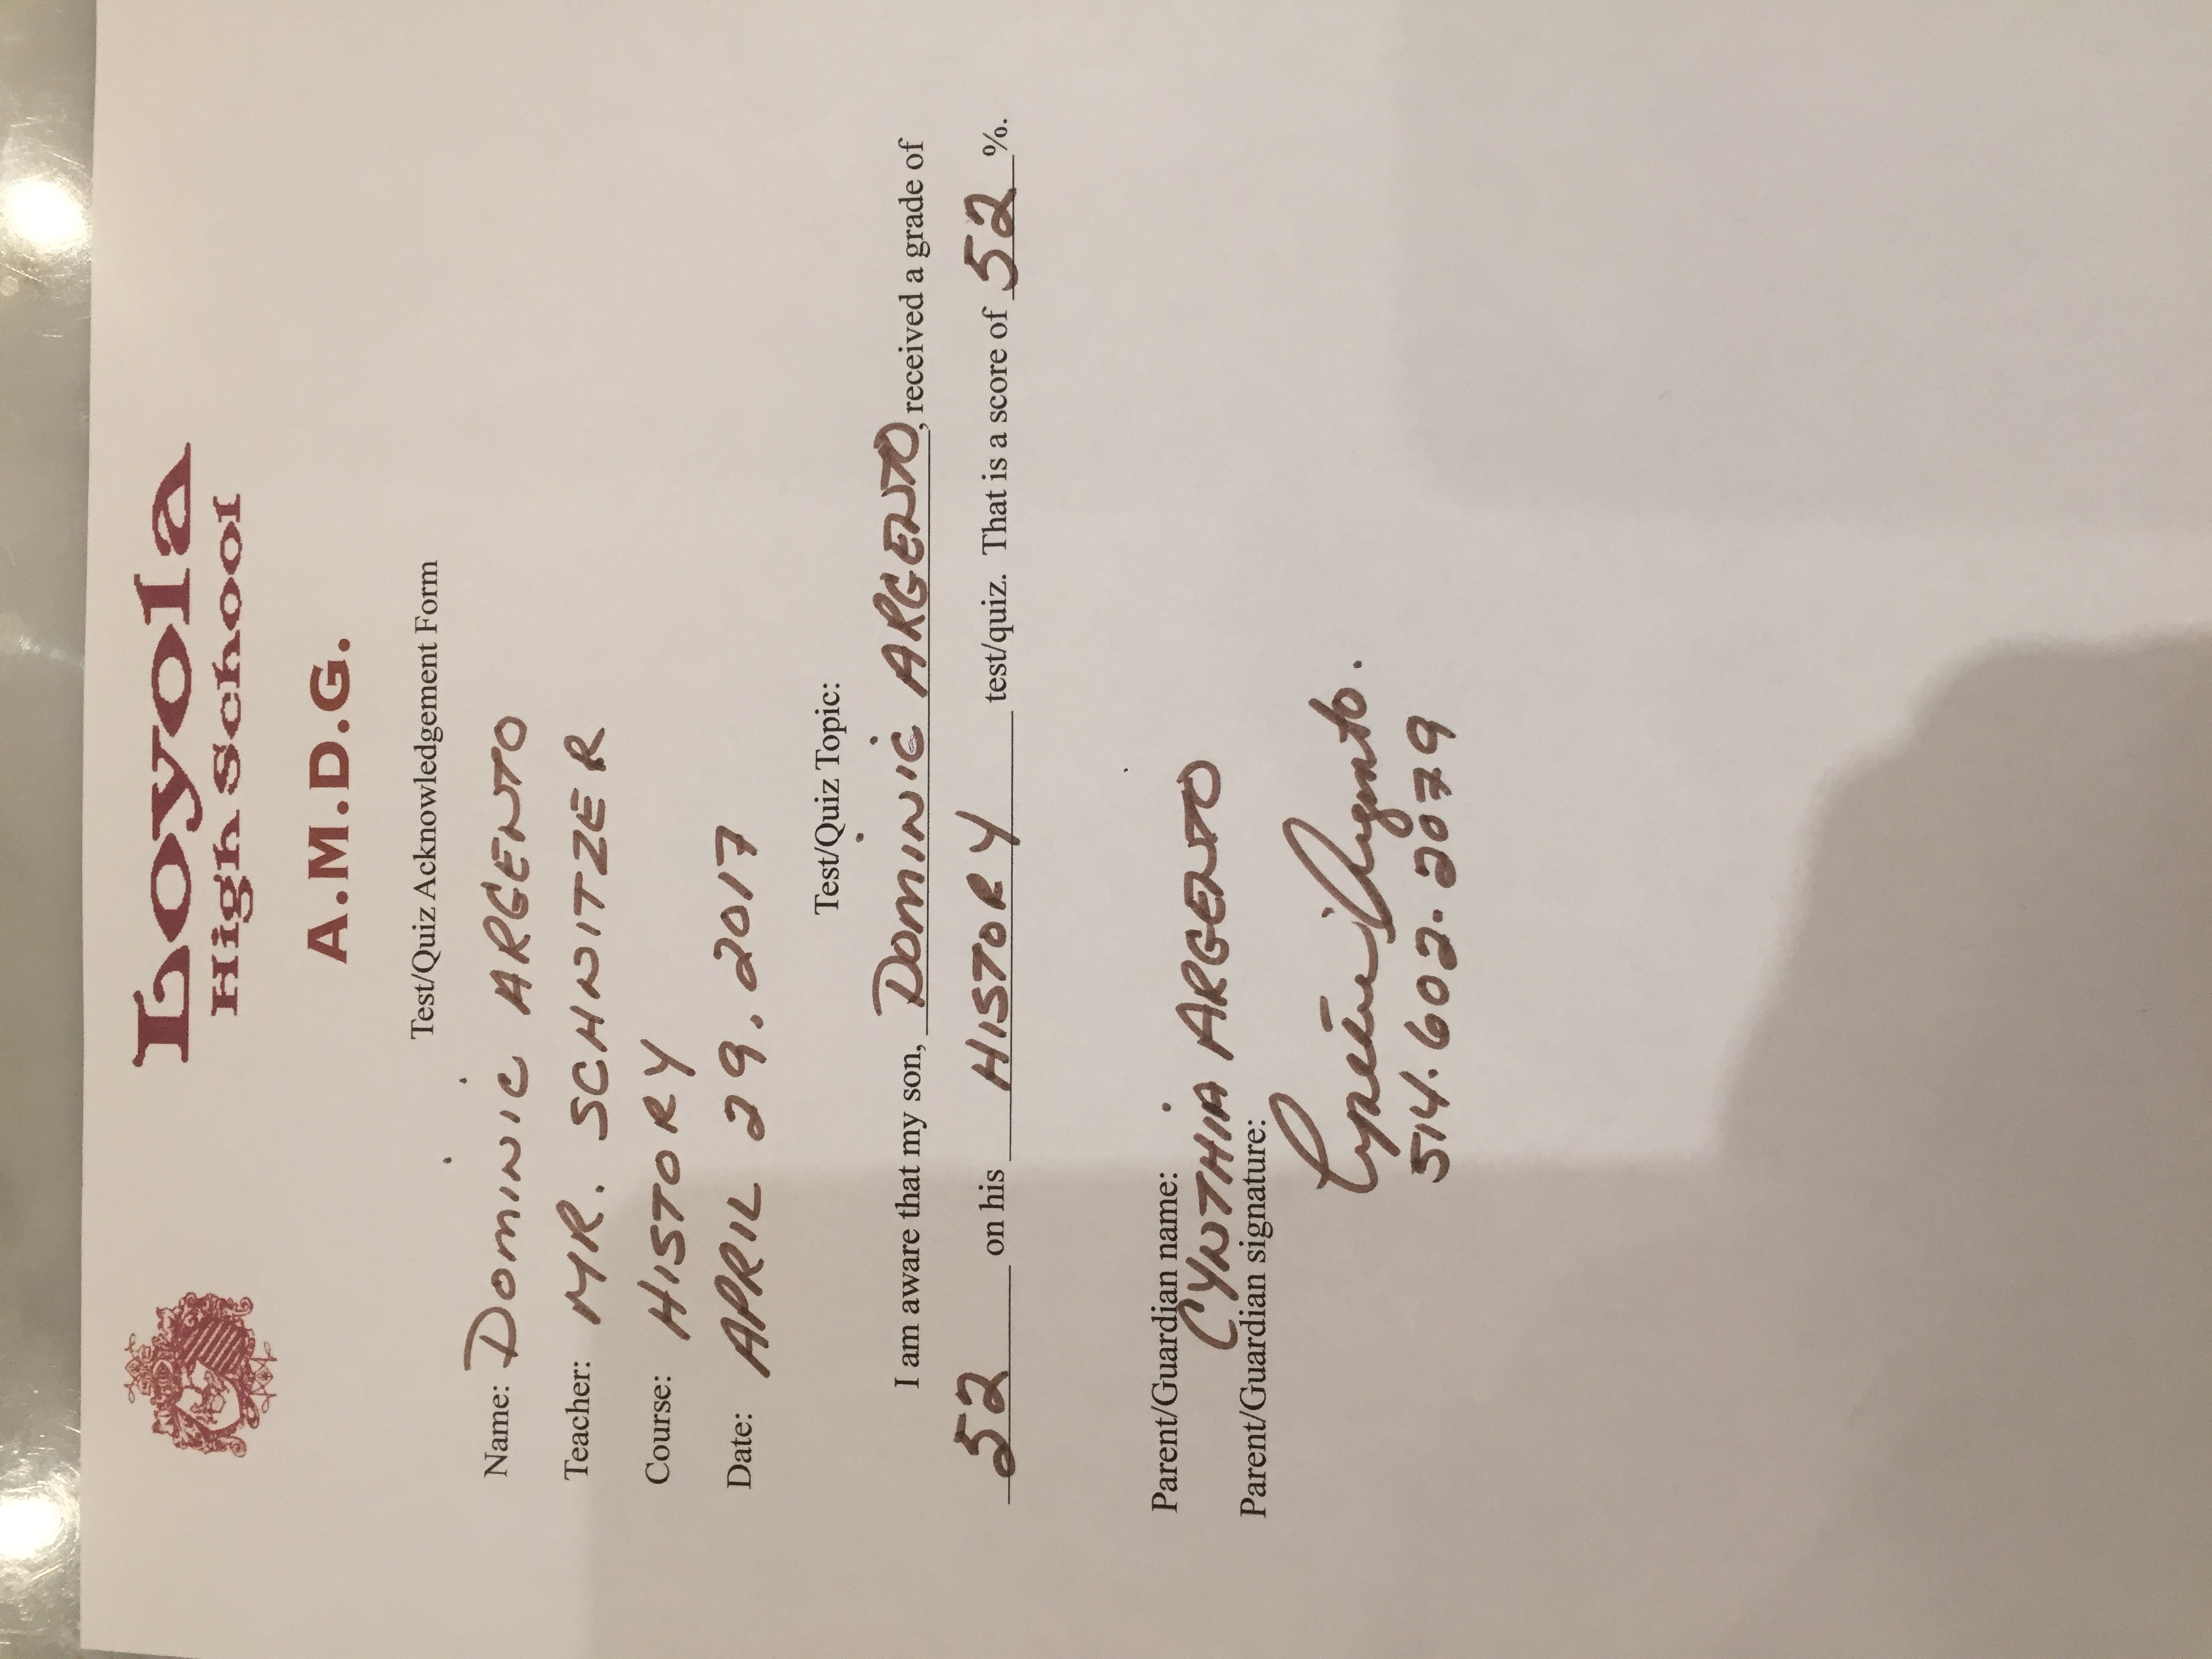 Loyola
High School
A.M.D.G.
Test/Quiz Acknowledgement Form
Name: Dominic ARGENTO
Teacher: MR. SCHNITZER
Course: HISTORY
Date: APRIL 29. 2017
Test/Quiz Topic:
I am aware that my son, Dominic ARGENTO, received a grade of
52 on his HISTORY test/quiz. That is a score of 52 %.
Parent/Guardian name:
CYNTHIA ARGENTO
Parent/Guardian signature:
Cynthia Argento.
514.602.2079